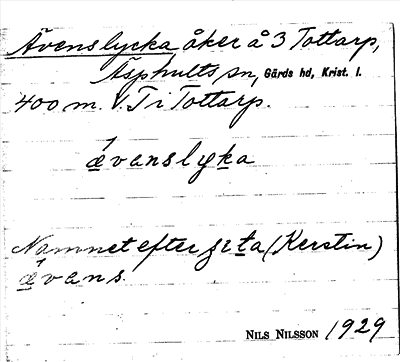 Ävenslycka åker å 3 Tottarp,
Äsphults sn, Gärds hd, Krist. l.
400 m. V. T i Tottarp.
ævanslyka
Namnet efter (Kerstin)
ævans.
NILS NILSSON 1929